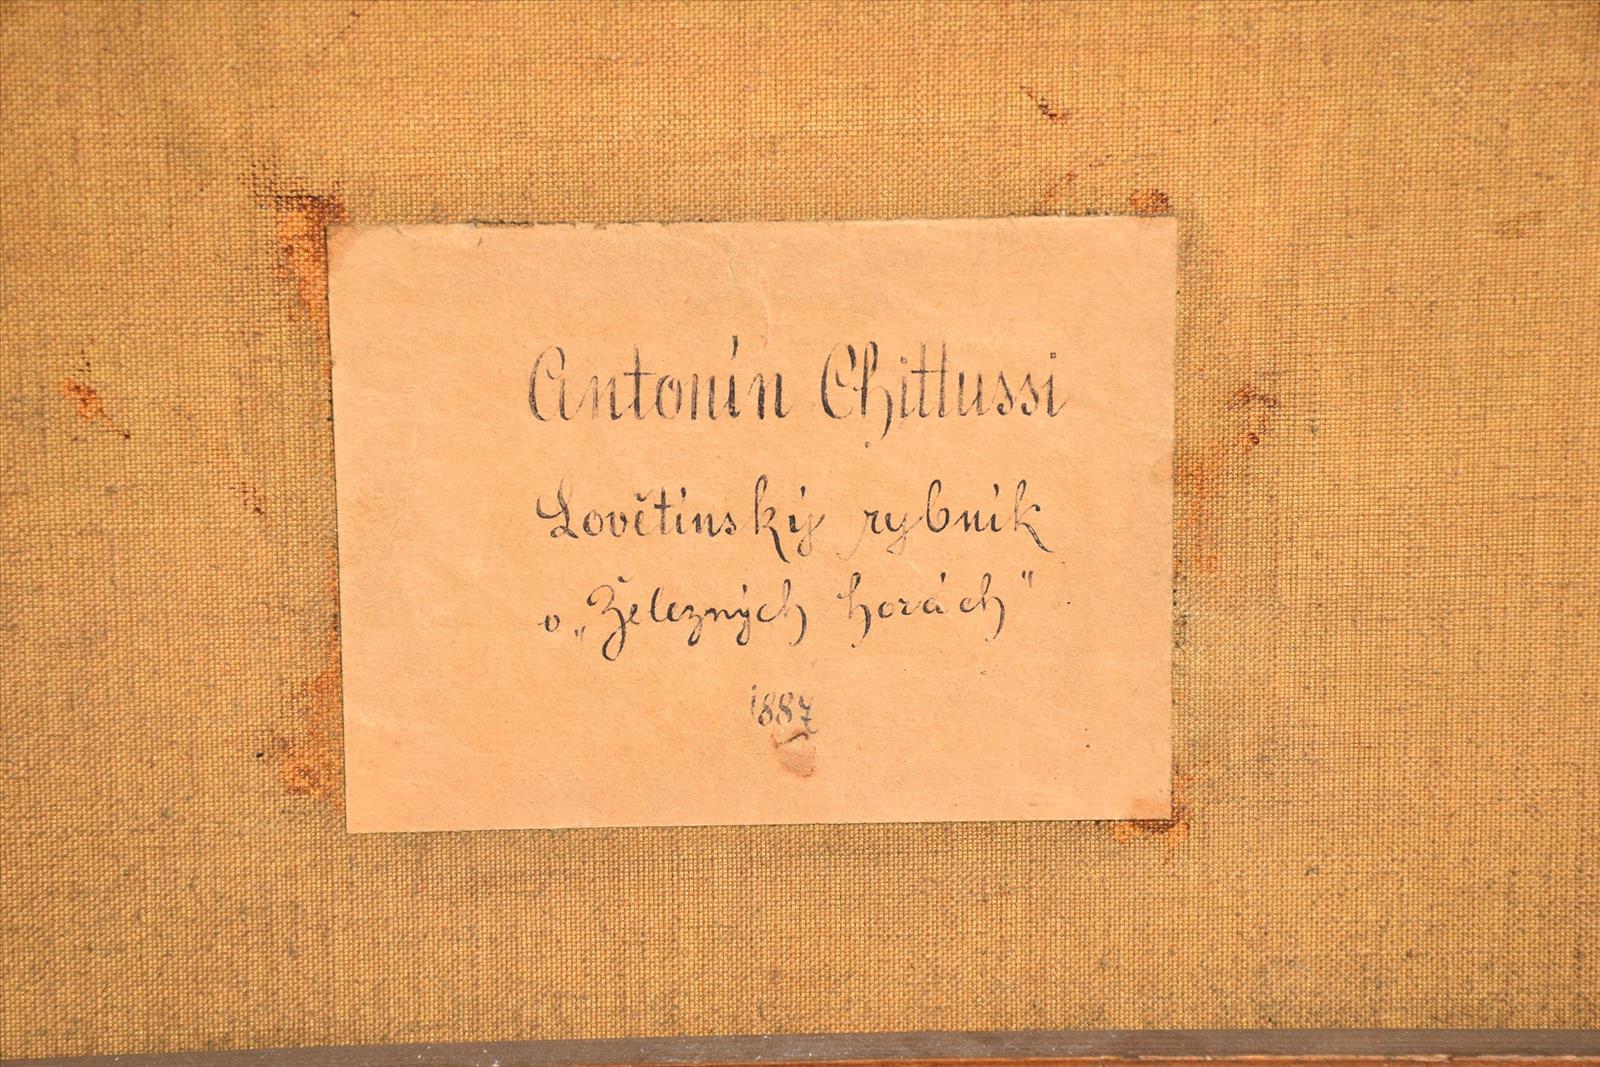 Antonín Chittussi
Lovětínský rybník
v „Železných horách"
1887